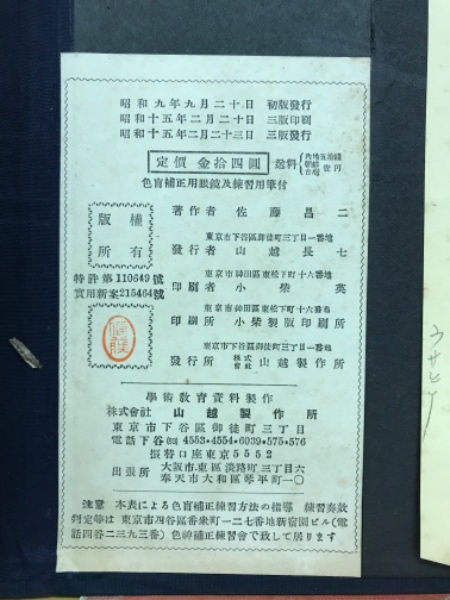 昭和九年九月二十日 初版發行
昭和十五年二月二十日 三版印刷
昭和十五年二月二十三日 三版發行
定價 金拾四圓 送料
色盲補正用眼鏡及練習用筆付
著作者 佐藤昌二
東京市下谷區御徒町三丁目一番地
發行者 山越長七
東京市神田區東松下町十六番地
印刷者 小柴英
東京市神田區東松下町十六番地
印刷所 小柴製版印刷所
東京市下谷區御徒町三丁目一番地
發行所 株式會社 山越製作所
版權
所有
特許第110649號
實用新案215464號
學術教育資料製作
株式會社 山越製作所
東京市下谷區御徒町三丁目
電話下谷 4553・4554・6039・575・576
振替口座東京5552
出張所 大阪市東區淡路町三丁目六
奉天市大和區琴平町一〇
注意 本表による色盲補正練習方法の指導 練習奏效
判定等は東京市四谷區番衆町一二七番地新宿園ビル(電
話四谷二三九三番)色神補正練習會で致して居ります